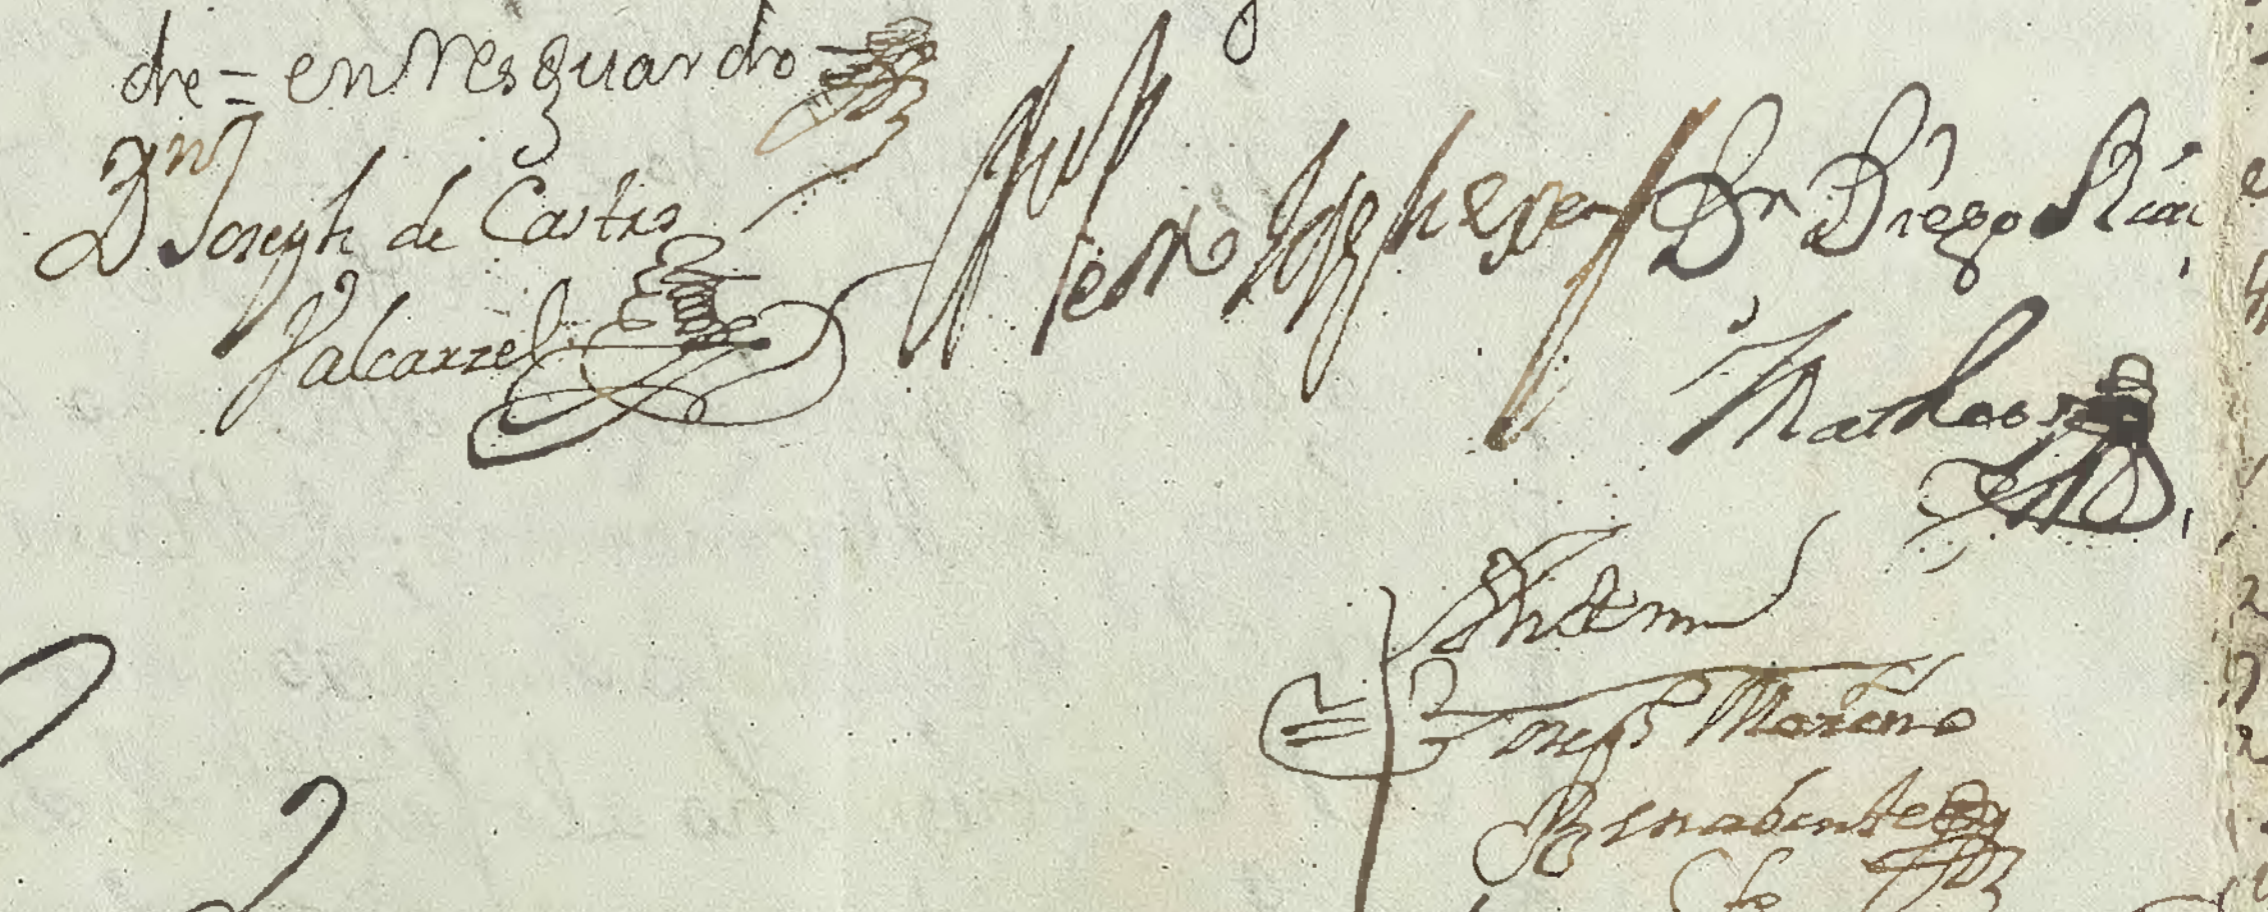 dre = enrresguardo
Dn Joseph de Castro
Valcarzel
Pedro
Dn Diego
Matheos
Ante mi
Joseph Moreno
Benabente